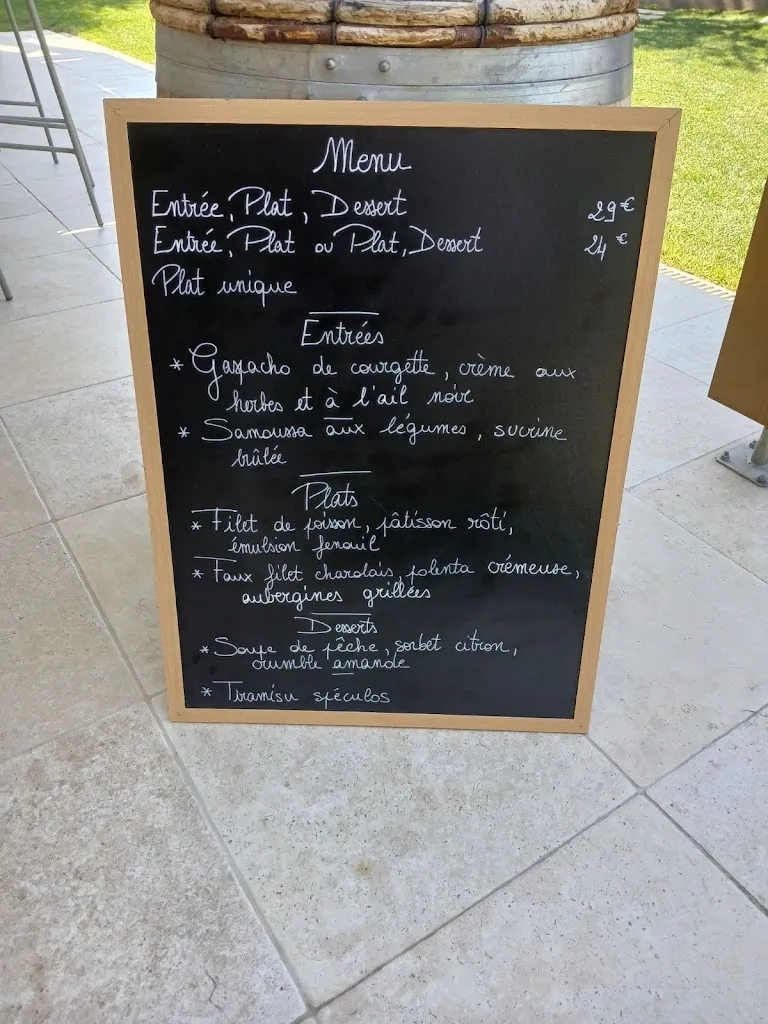 Menu
Entrée, Plat, Dessert 29€
Entrée, Plat ou Plat, Dessert 24€
Plat unique
Entrées
* Gaspacho de courgette, crème aux
herbes et à l'ail noir
* Samoussa aux légumes, sucrine
brûlée
Plats
* Filet de poisson, pâtisson rôti,
émulsion fenouil
* Faux filet charolais, polenta crémeuse,
aubergines grillées
Desserts
* Soupe de pêche, sorbet citron,
crumble amande
* Tiramisu spéculos